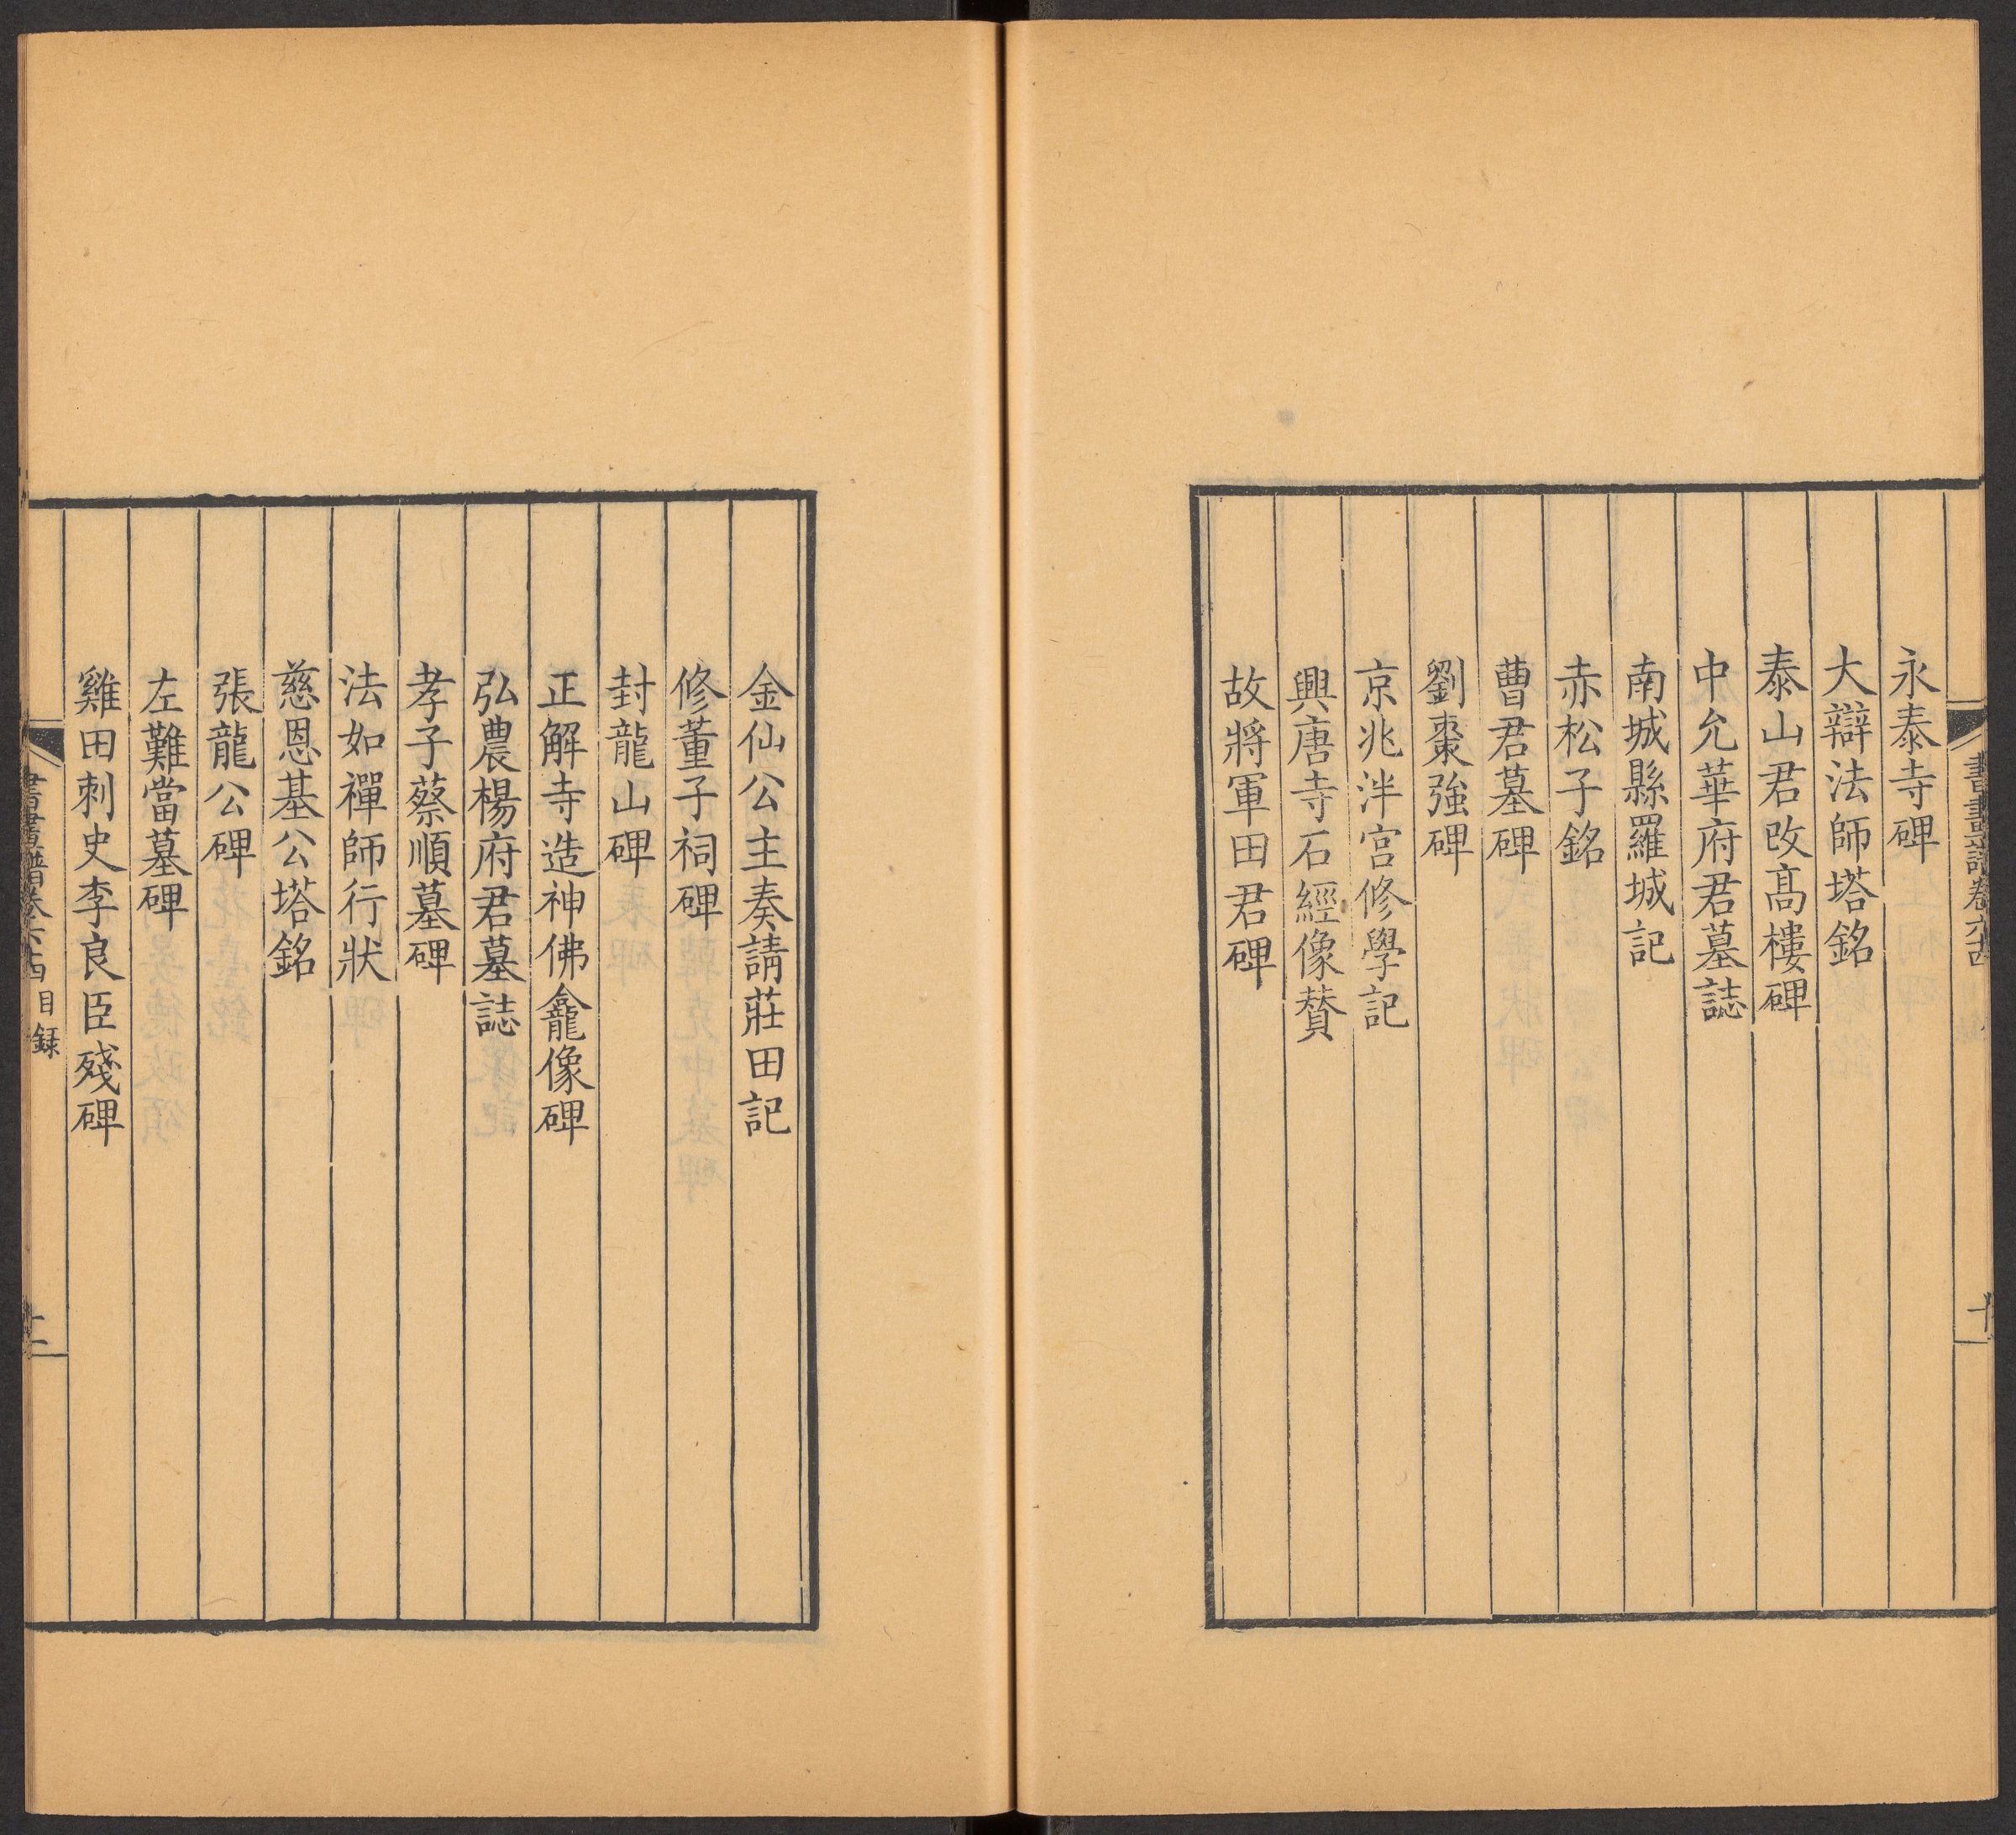 永泰寺碑
大辯法師塔銘
泰山君改髙樓碑
中允華府君墓誌
南城縣羅城記
赤松子銘
曹君墓碑
劉棗強碑
京兆泮宮修學記
興唐寺石經像贊
故將軍田君碑
金仙公主奏請莊田記
修董子祠碑
封龍山碑
正解寺造神佛龕像碑
弘農楊府君墓誌
孝子蔡順墓碑
法如禪師行狀
慈恩基公塔銘
張龍公碑
左難當墓碑
雞田刺史李良臣殘碑
書畫譜卷六十四 目録